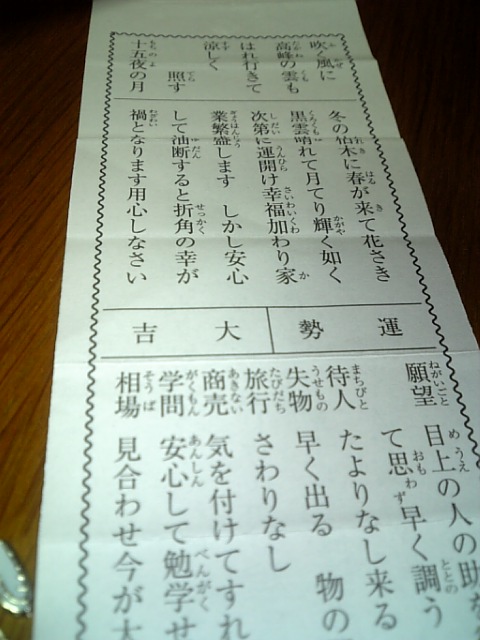 吹く風に
高峰の雲も
はれ行きて
涼しく
照す
十五夜の月
冬の枯木に春が来て花さき
黒雲晴れて月てり輝く如く
次第に運開け幸福加わり家
業繁盛します しかし安心
して油断すると折角の幸が
禍となります用心しなさい
運勢
大吉
願望 目上の人の助を
て思わず早く調う
待人 たよりなし来る
失物 早く出る 物の
旅行 さわりなし
商売 気を付けてすれ
学問 安心して勉学せ
相場 見合わせ今が大